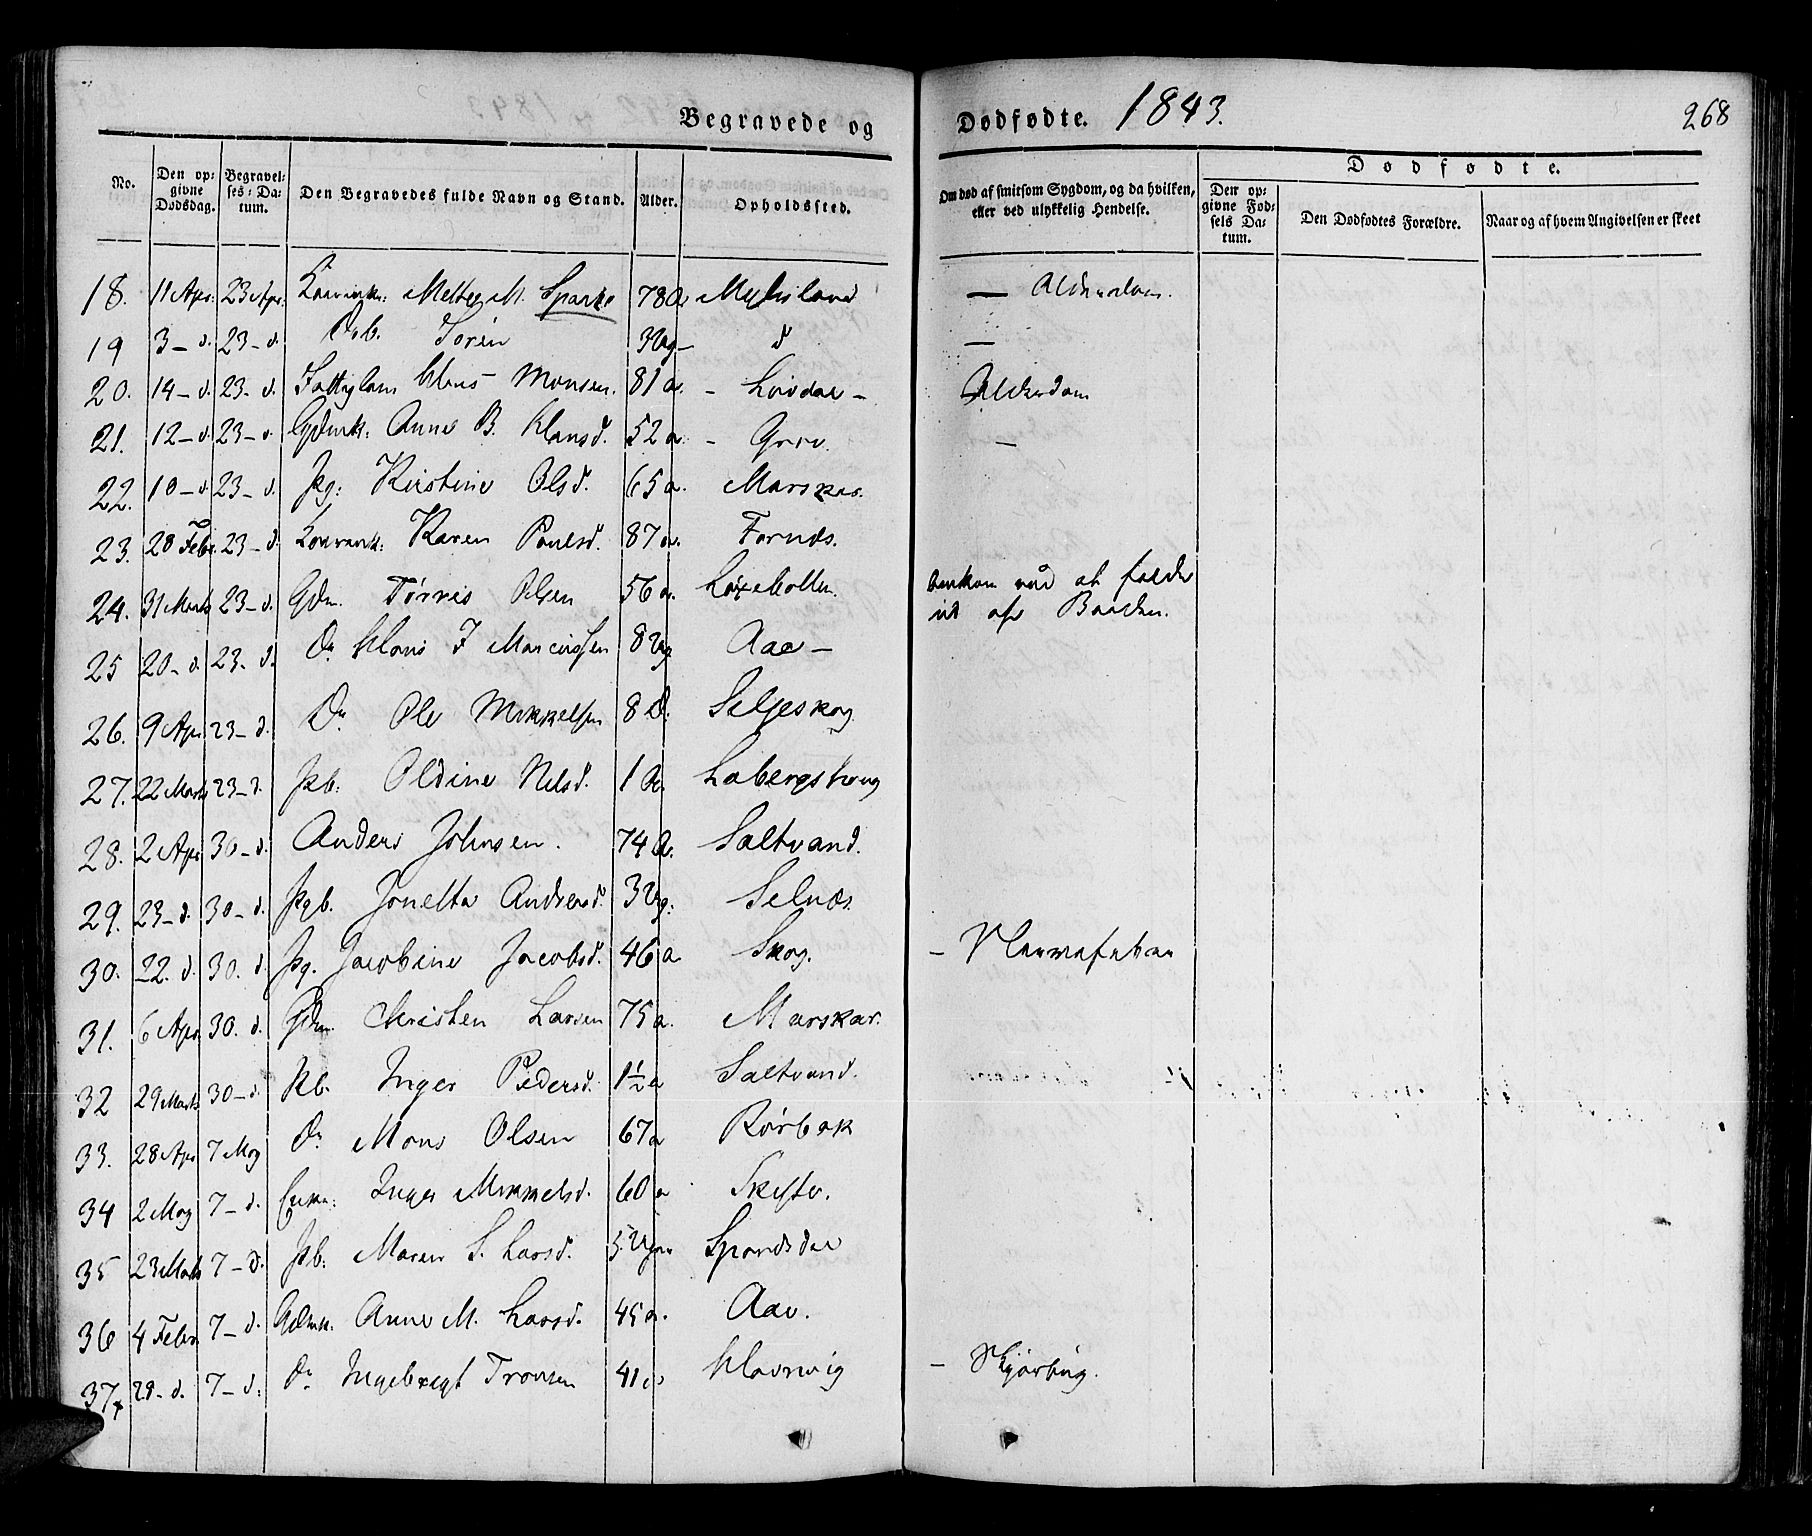 Begravede og Dødfødte. 1843. 268
No. Den opgivne Dødsdag. Begravelses-Datum. Den Begravedes fulde Navn og Stand. Alder. Opholdssted. Om død af smitsom Sygdom, og da hvilken, eller ved ulykkelig Hendelse. Dødfødte. Den opgivne Fødsels Datum. Den Dødfødtes Forældre. Naar og af hvem Angivelsen er skeet
18. 11 Apr. 23 Apr. Mette M. Sparbo 78 A — Alderdom.
19 3 – d. 23 – d. Db. Sören 3 Ug – d —
20. 14 – d. 23 – d. Fattiglem Monsen. 81 a. – Lövdal – Alderdom
21. 12 – d. 23 – d Gdmk: Anne B. Klausd. 52 a. – —
22. 10 – d. 23 – d. Pg: Kirstine Olsd. 65 a. Marskar.
23. 28 Febr. 23 – d. Karen Poulsd. 87 a. Fornæs.
24. 31 Marts 23 – d. Gdm. Tørris Olsen 56 a. omkom ved at falde ud af Baaden.
25 20 – d. 23 – d. Dr. Marcussen 8 Ug Aae –
26. 9 Apr. 23 – d. Dr. Ole Mikkelsen 8 D. Seljeskog
27. 22 Marts 23 – d. Pb: Oldine Nilsd. 1 A. Labergshoug
28. 2 Apr 30 – d. Anders Johnsen. 74 A. Saltvand.
29. 23 – d. 30 – d. Pgb. Jonetta Andersd. 3 Ug. Selnæs
30. 22. d. 30. d. Pg. Jacobine Jacobsd. 46 a. Skog. –
31. 6 Apr. 30. d. Gdm. Christen Larsen 75 a. Marskar.
32 29 Marts 30 – d. Pb. Inger Pedersd. 1½ a Saltvand.
33. 28 Apr 7 May Dr. Mons Olsen 67 a Rørbæk
34 2 May 7 – d. Enke: Inger Mikkelsd. 60 a
35 23 Marts 7 – d. Pb. Maren S. Larsd. 5 Uger Spandsdal
36 4 Febr. 7 – d. Gdmk. Anne M. Larsd. 45 a. Aae.
37 28 – d. 7 – d. Dr. Ingebregt Tronsen 41 a Klavenvig – Skjørbug.